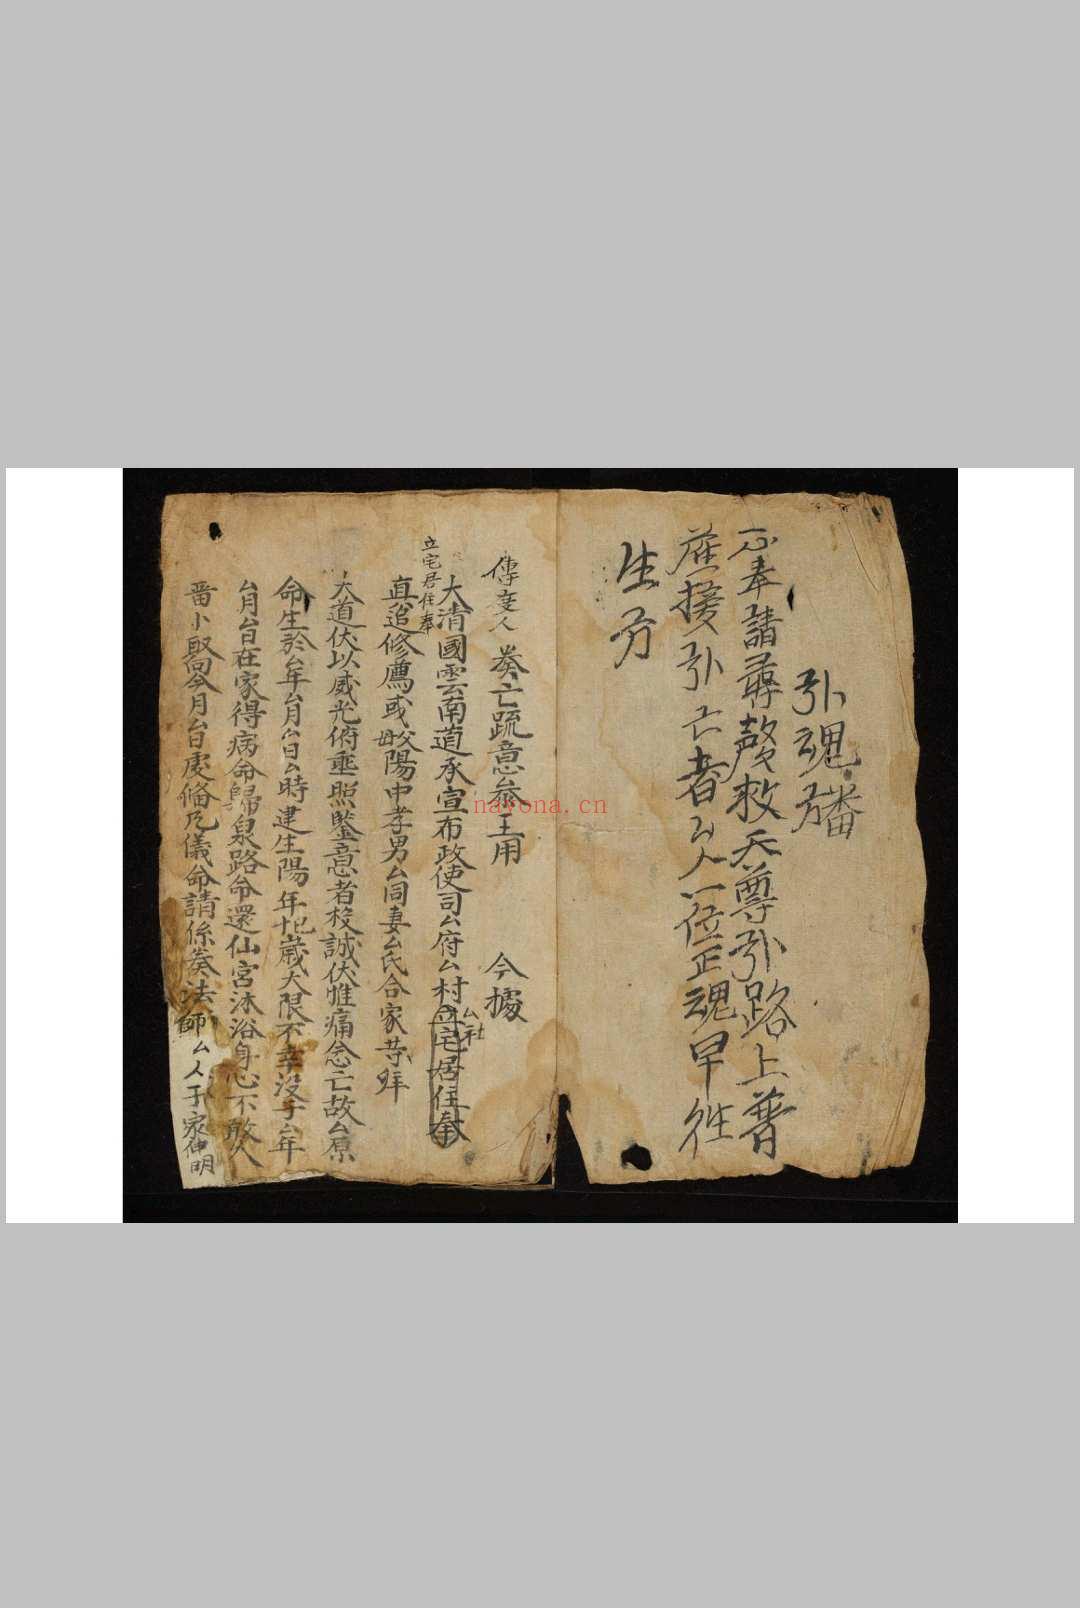 引魂旛
一心奉請尋聲救天尊引路上普
莊接引亡者厶人一位正魂早往
生方
傳度人 奏亡疏意叅王用 今據
立宅居住奉
大清國雲南道承宣布政使司厶府厶村立宅居住奉
厶社
真追修薦或父母陽中孝男厶同妻厶氏合家等拜
大道伏以威光俯垂照鑒意者投誠伏惟痛念亡故厶原
命生於厶年厶月厶日厶時建生陽年 歲大限不幸没于厶年
厶月厶日在家得病命歸泉路命還仙宮沐浴身心不敢久
畱卜取今月厶日處俻凡儀命請係奏法師厶人于家伸明
nayona.cn